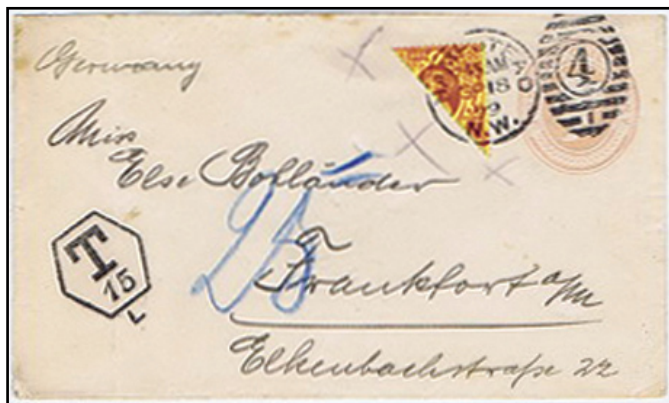 Germany
Miss
Else Bolländer
Frankfort a/m
Elkenbachstraße 22
25
T
15
L
AM
18
N.W.
4
1